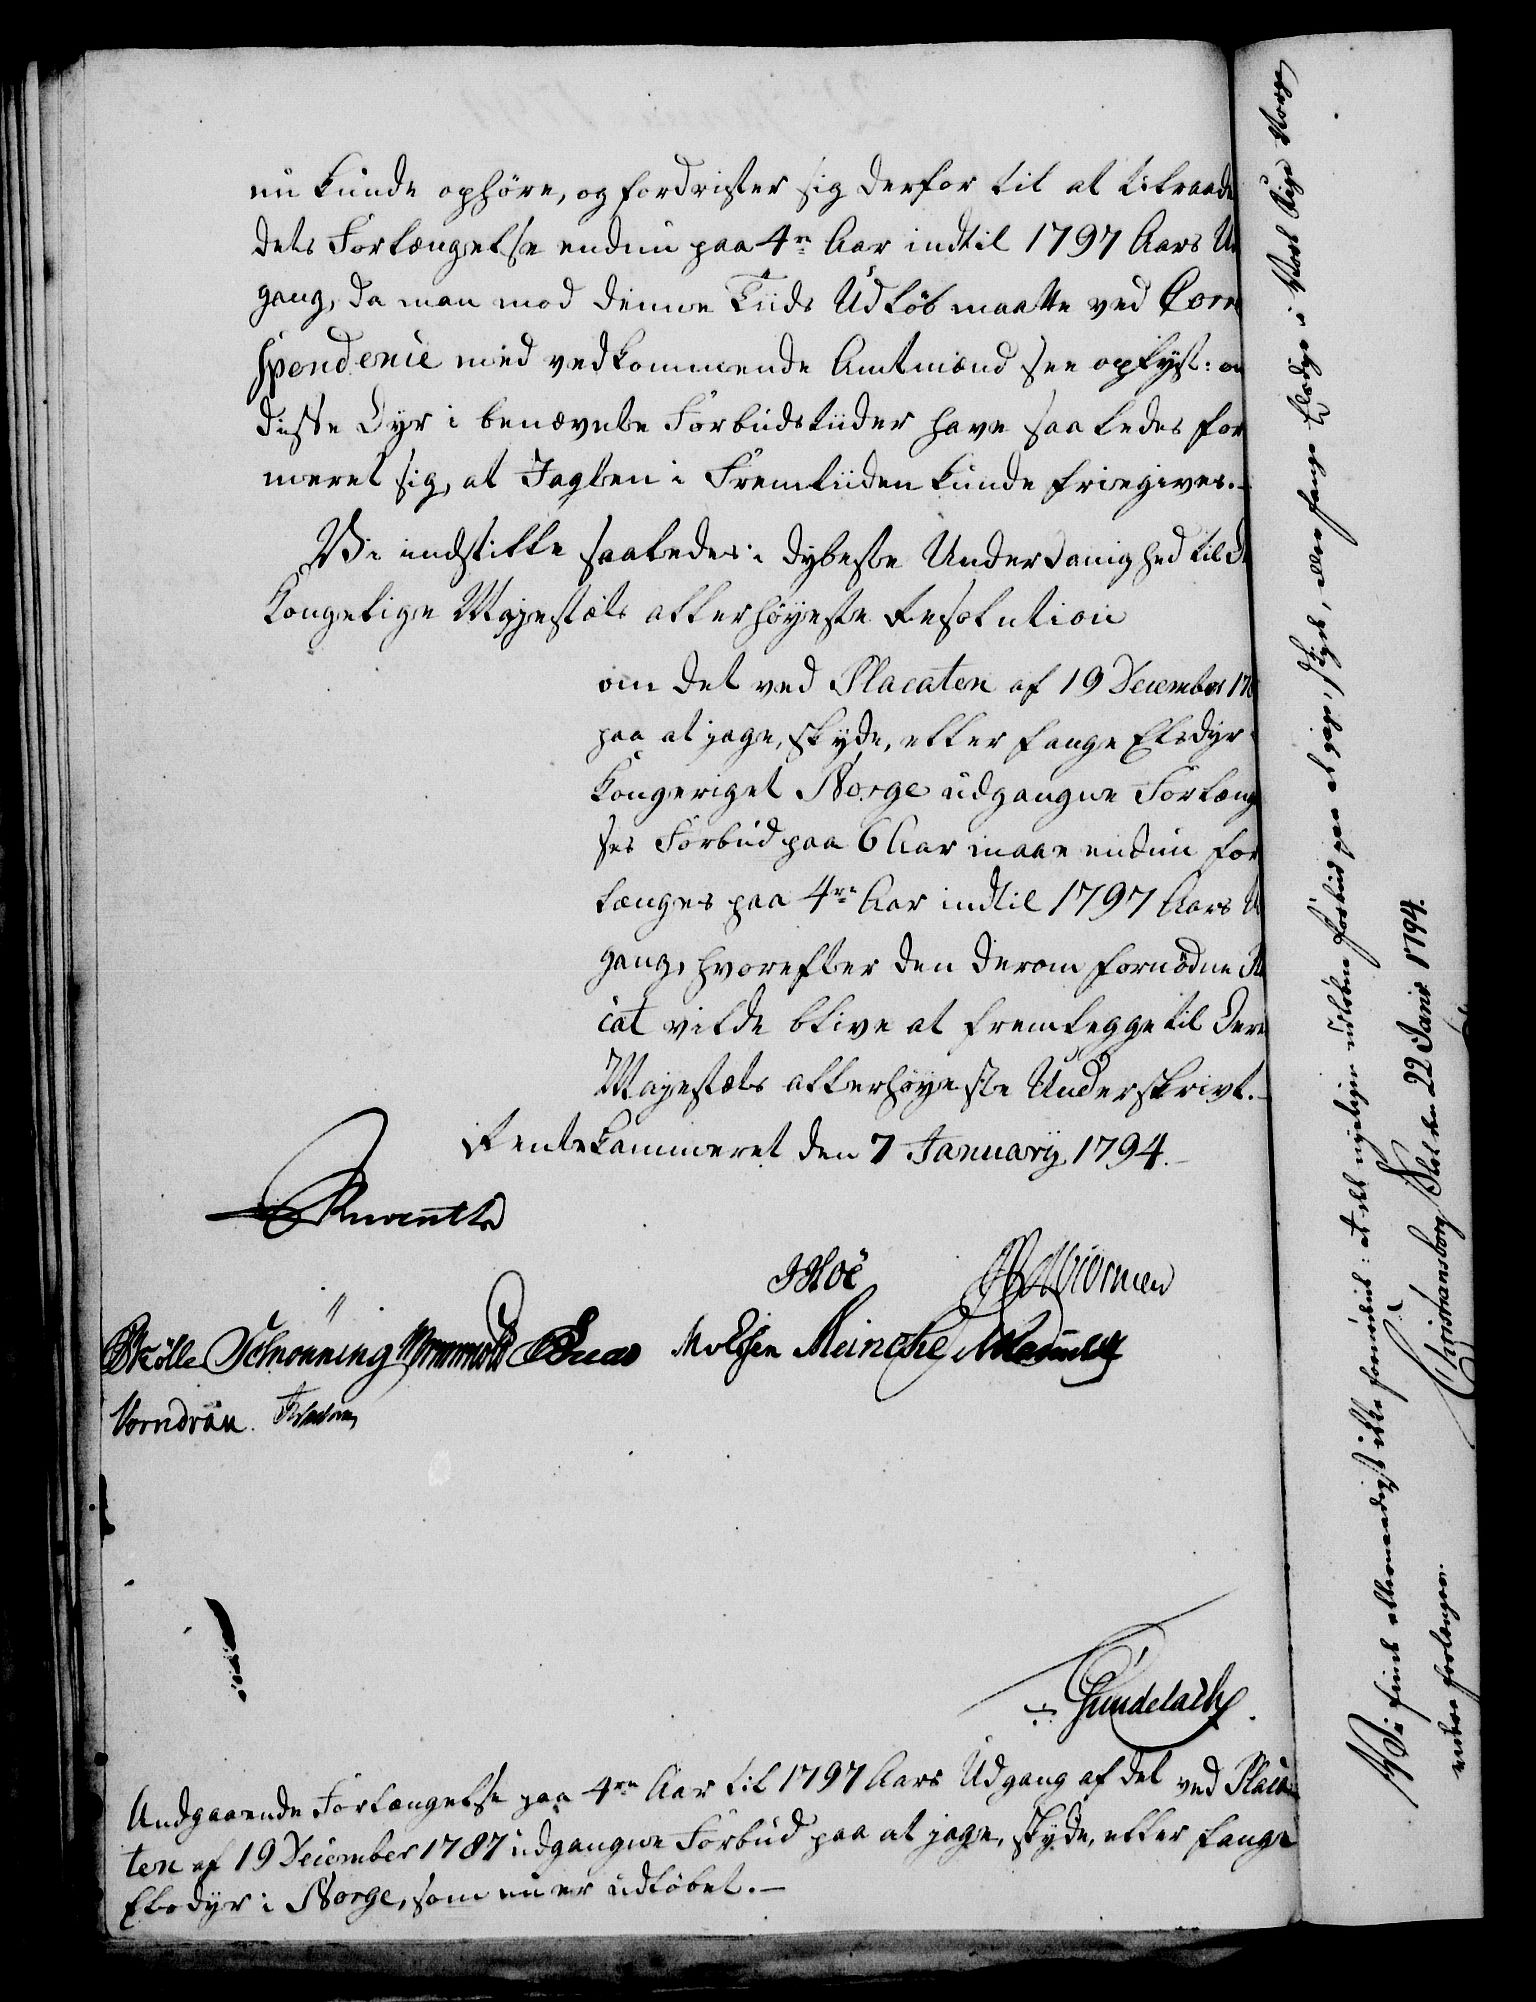 nu kunde ophøre, og fordrister sig derfor til at tilraade
dets Forlængelse endnu paa 4re Aar indtil 1797 Aars U
gang, da man mod denne Tiids Udløb maatte ved Corre
spondence med vedkommende Amtmænd see oplyst: om
disse Dyr i benævnte Forbudstiider have saaledes for
meret sig, at Jagten i Fremtiiden kunde friegives.-
Vi indstille saaledes i dybeste Underdanighed til D
Kongelige Majestæts allerhøyeste Resolution
om det ved Placaten af 19 December 178
paa at jage, skyde, eller fange Elsdyr i
Kongeriget Norge udgangne Forlæng
ses Forbud paa 6 Aar maae endnu for
længes paa 4re Aar indtil 1797 Aars U
gang, hvorefter den derom fornødne Pla
cat vilde blive at fremlegge til Deres
Majestæts allerhøyeste Underskrivt.-
Rentekammeret den 7 January 1794.-
Reventlo
JHoë
Skölle Schönning Wormskiold Buas Molthen Meincke
Vorndran.
Gundelach.
Andgaaende Forlængelse paa 4re Aar til 1797 Aars Udgang af det ved Placa
ten af 19 December 1787 udgangne Forbud paa at jage, skyde, eller fange
Elsdyr i Norge, som nu er udløbet.-
Vi finde allernaadigst ikke fornødent: at det nyeligen udløbne Forbud paa at jage, skyde, eller fange Elsdyr i Vort Rige Norge
endnu forlænges.
Christiansborg Slot den 22 Janr 1794.